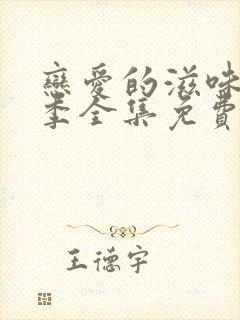 戀愛的滋味
季全集免費
王德宇